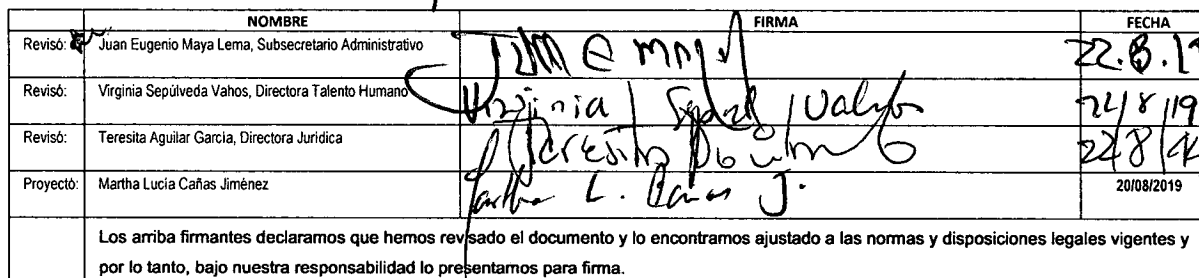 NOMBRE FIRMA FECHA
Revisó: Juan Eugenio Maya Lema, Subsecretario Administrativo 22.8.19
Revisó: Virginia Sepúlveda Vahos, Directora Talento Humano Virginia Sepúl Vahos
Revisó: Teresita Aguilar García, Directora Jurídica Teresita
Proyectó: Martha Lucía Cañas Jiménez Martha L. Cañas J. 20/08/2019
Los arriba firmantes declaramos que hemos revisado el documento y lo encontramos ajustado a las normas y disposiciones legales vigentes y
por lo tanto, bajo nuestra responsabilidad lo presentamos para firma.